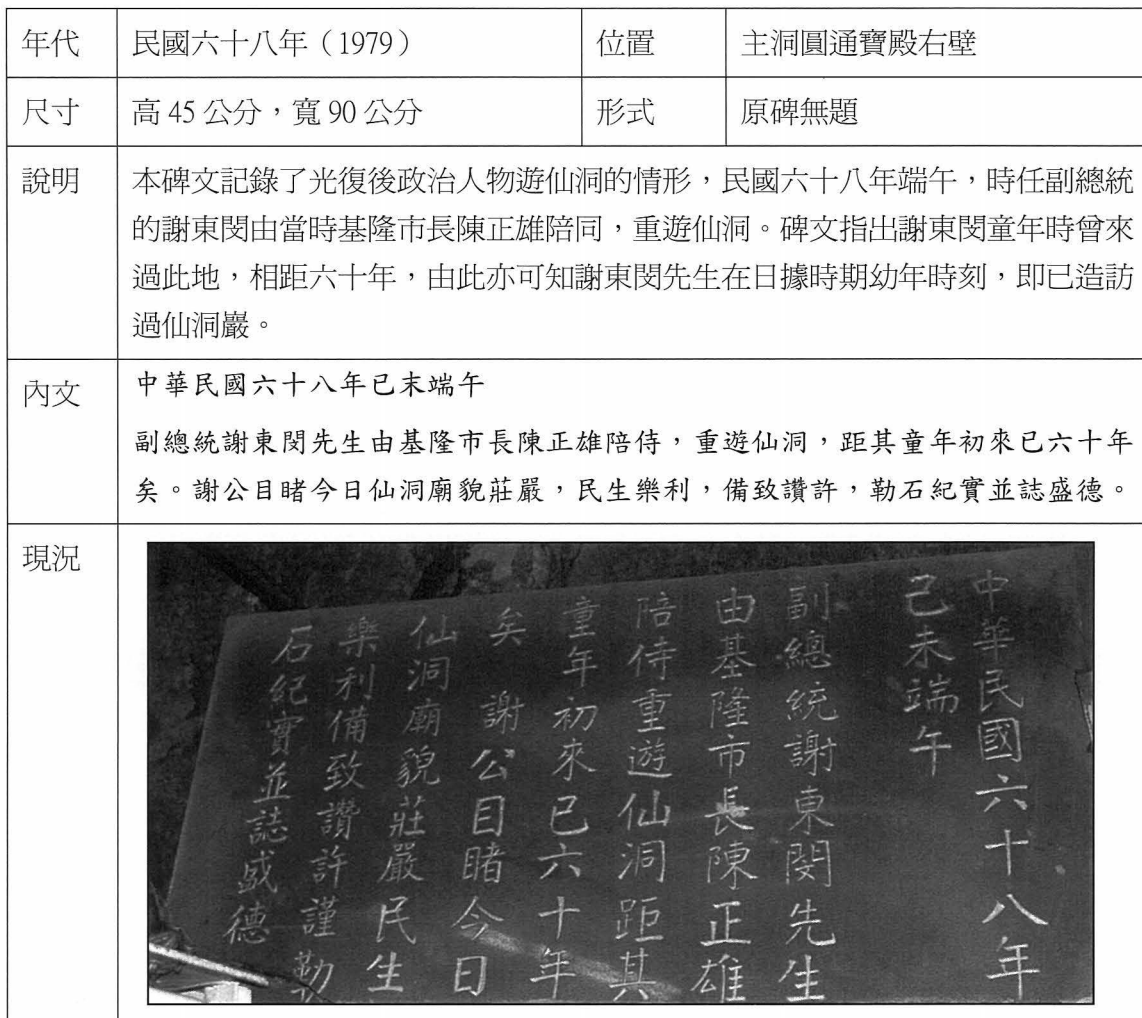 年代 民國六十八年（1979） 位置 主洞圓通寶殿右壁
尺寸 高 45 公分，寬 90 公分 形式 原碑無題
說明 本碑文記錄了光復後政治人物遊仙洞的情形，民國六十八年端午，時任副總統
的謝東閔由當時基隆市長陳正雄陪同，重遊仙洞。碑文指出謝東閔童年時曾來
過此地，相距六十年，由此亦可知謝東閔先生在日據時期幼年時刻，即已造訪
過仙洞巖。
內文 中華民國六十八年已末端午
副總統謝東閔先生由基隆市長陳正雄陪侍，重遊仙洞，距其童年初來已六十年
矣。謝公目睹今日仙洞廟貌莊嚴，民生樂利，備致讚許，勒石紀實並誌盛德。
現況
中華民國六十八年
己未端午
副總統謝東閔先生
由基隆市長陳正雄
陪侍重遊仙洞距其
童年初來已六十年
矣 謝公目睹今日
仙洞廟貌莊嚴民生
樂利備致讚許謹勒
石紀實並誌盛德